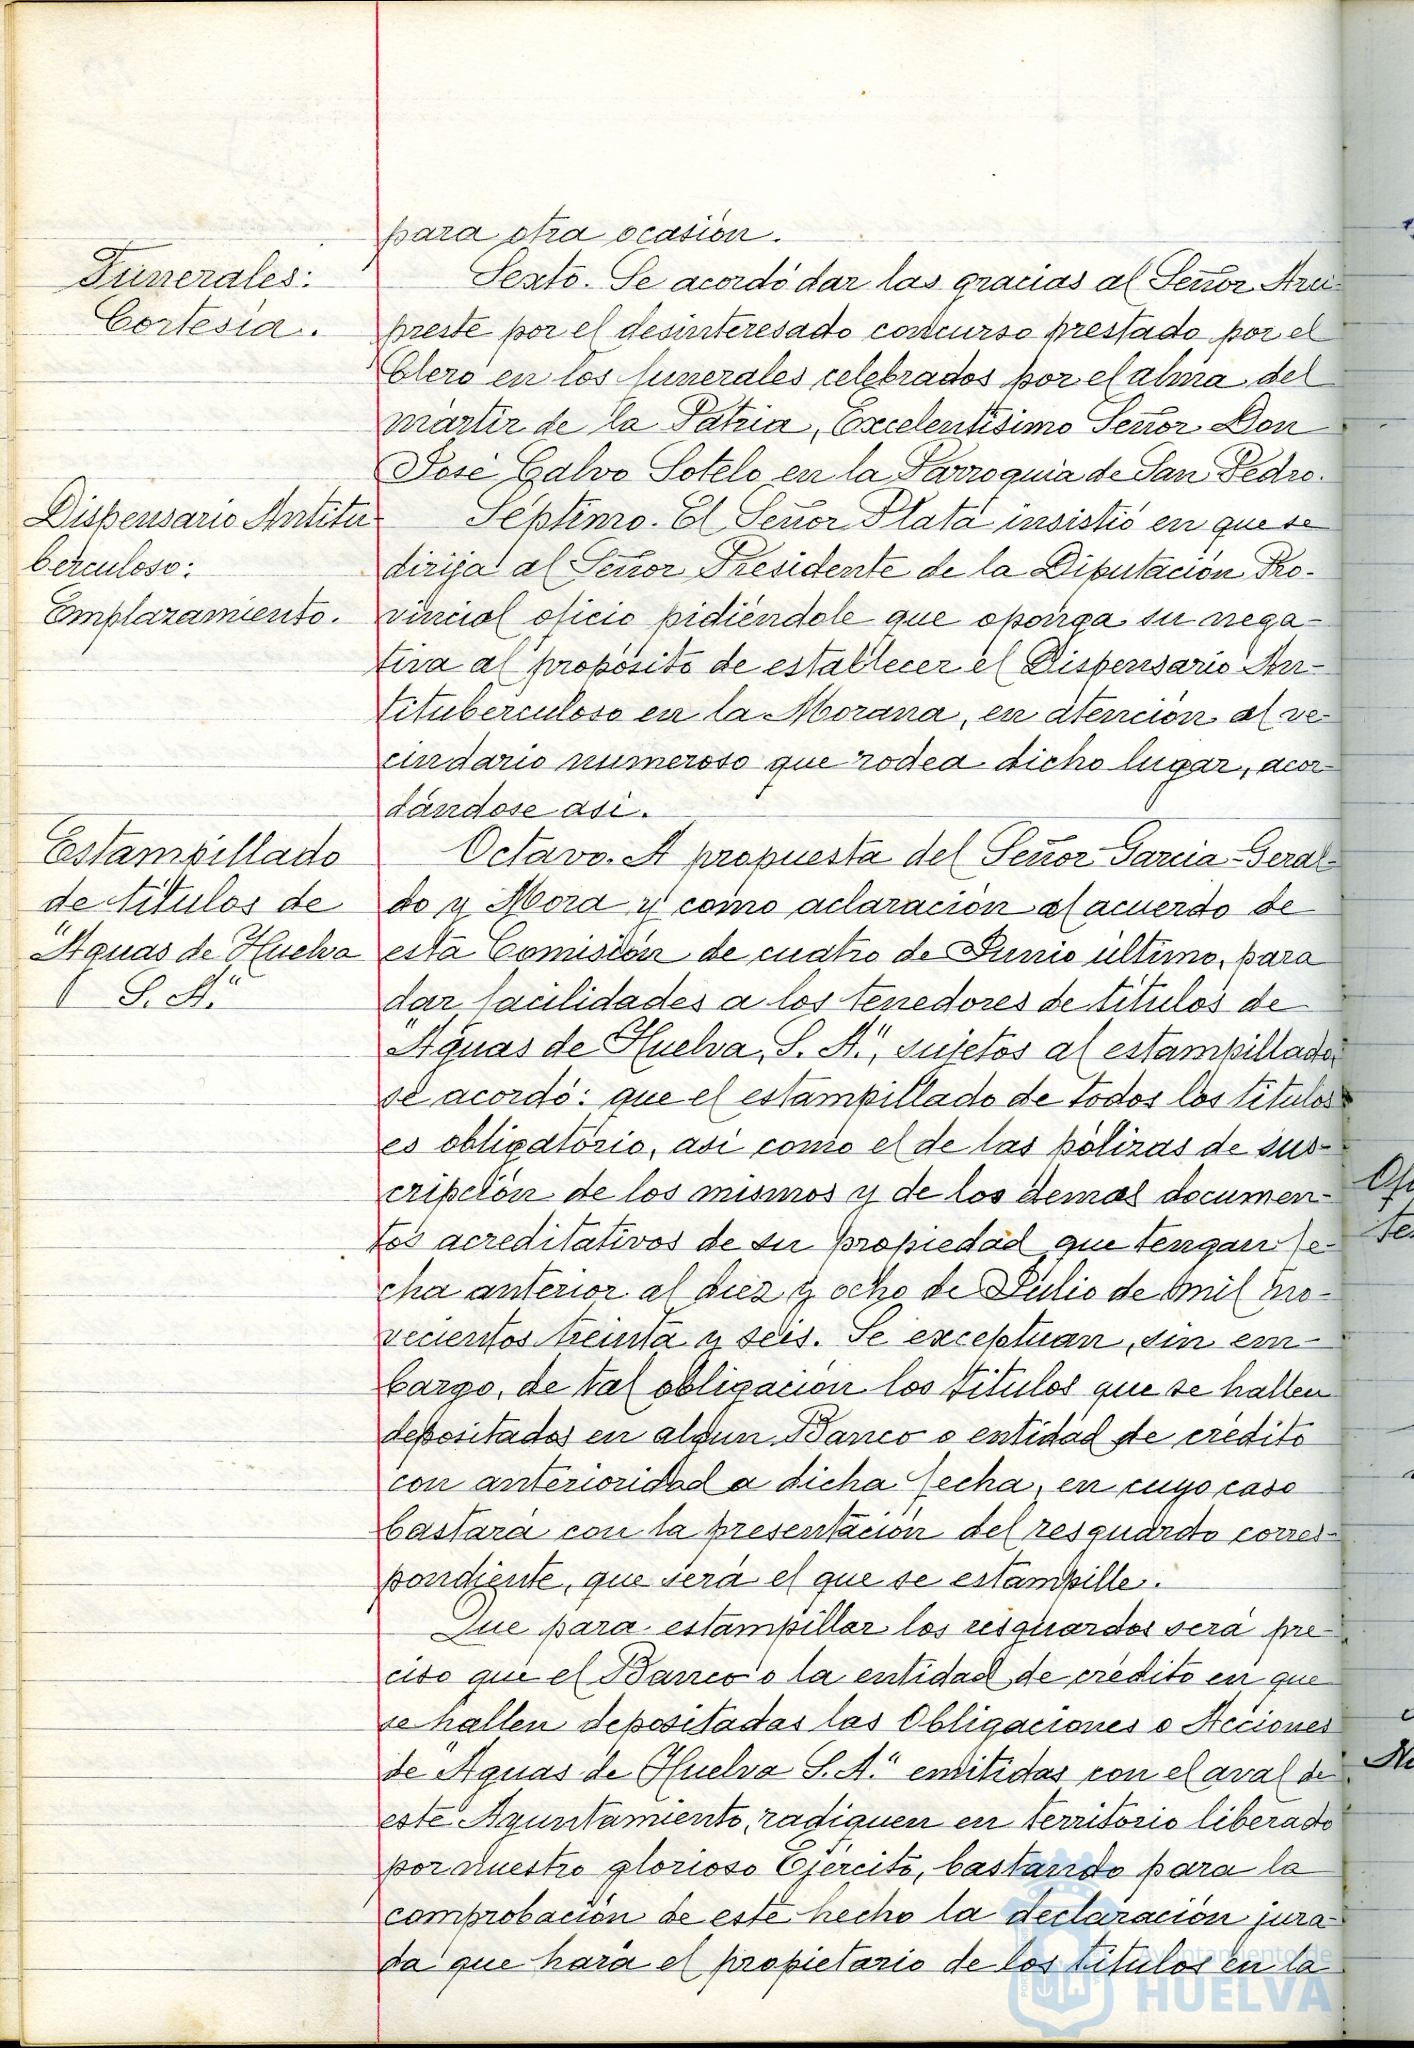 para otra ocasión.
Funerales:
Cortesía.
Sexto. Se acordó dar las gracias al Señor Arci-
preste por el desinteresado concurso prestado por el
Clero en los funerales celebrados por el alma del
mártir de la Patria, Excelentísimo Señor Don
José Calvo Sotelo en la Parroquia de San Pedro.
Dispensario Antitu-
berculoso:
Emplazamiento.
Séptimo. El Señor Plata insistió en que se
dirija al Señor Presidente de la Diputación Pro-
vincial oficio pidiéndole que oponga su nega-
tiva al propósito de establecer el Dispensario An-
tituberculoso en la Morana, en atención al ve-
cindario numeroso que rodea dicho lugar, acor-
dándose así.
Estampillado
de títulos de
"Aguas de Huelva
S. A."
Octavo. A propuesta del Señor Garcia-Geral-
do y Mora y como aclaración al acuerdo de
esta Comisión de cuatro de Junio último, para
dar facilidades a los tenedores de títulos de
"Aguas de Huelva, S. A.", sujetos al estampillado,
se acordó: que el estampillado de todos los títulos
es obligatorio, así como el de las pólizas de sus-
cripción de los mismos y de los demás documen-
tos acreditativos de su propiedad que tengan fe-
cha anterior al diez y ocho de Julio de mil no-
vecientos treinta y seis. Se exceptuan, sin em-
bargo, de tal obligación los títulos que se hallen
depositados en algun Banco o entidad de crédito
con anterioridad a dicha fecha, en cuyo caso
bastará con la presentación del resguardo corres-
pondiente, que será el que se estampille.
Que para estampillar los resguardos será pre-
ciso que el Banco o la entidad de crédito en que
se hallen depositadas las Obligaciones o Acciones
de "Aguas de Huelva S. A." emitidas con el aval de
este Ayuntamiento, radiquen en territorio liberado
por nuestro glorioso Ejército, bastando para la
comprobación de este hecho la declaración jura-
da que hará el propietario de los títulos en la
Ayuntamiento de
HUELVA